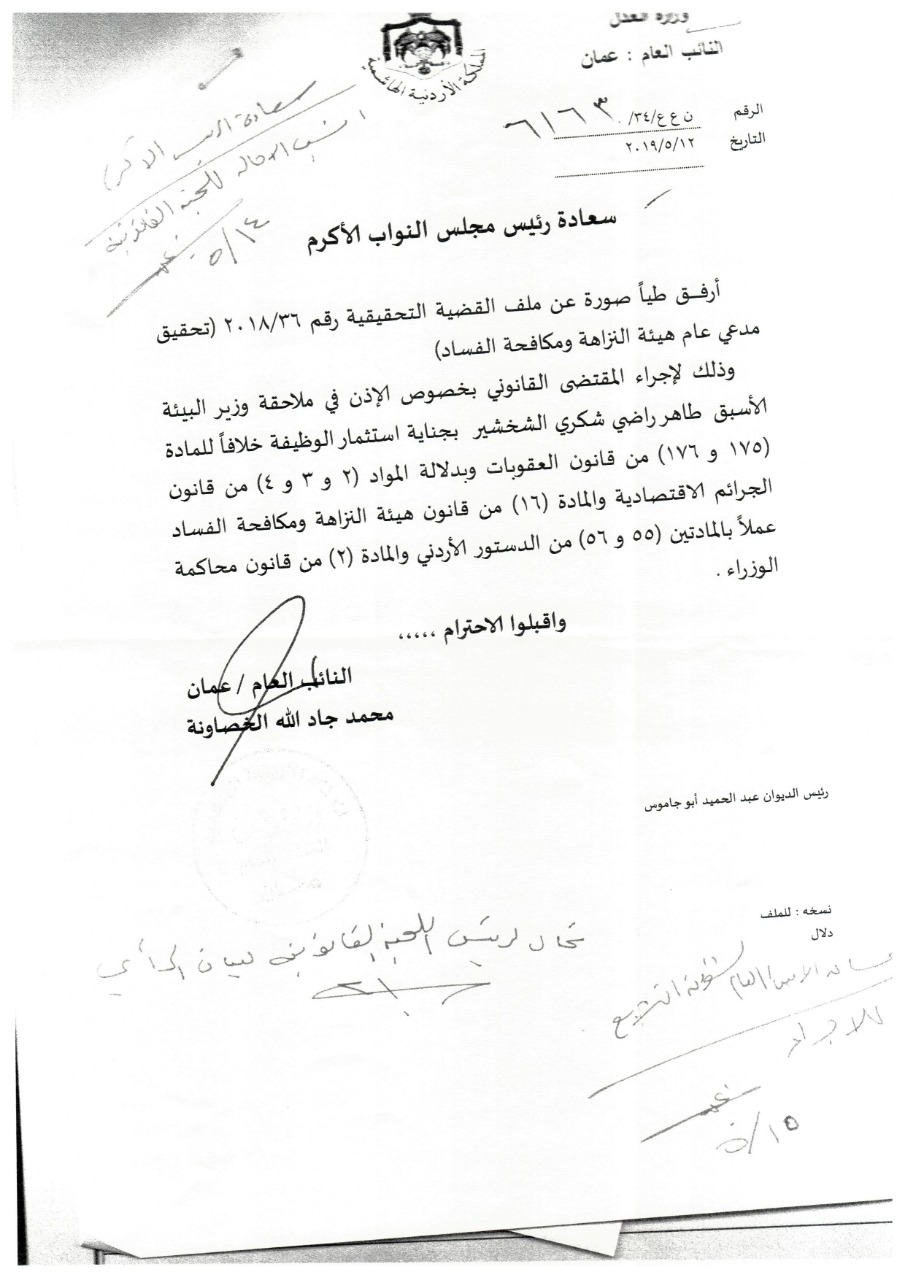 وزارة العدل
النائب العام : عمان
المملكة الأردنية الهاشمية
الرقم ن ع ع/٣٤/ ٦١٦٣
التاريخ ٢٠١٩/٥/١٢
سعادة الرئيس الأكرم
انسب الاحالة للجنة القانونية
٥/١٤
سعادة رئيس مجلس النواب الأكرم
أرفق طياً صورة عن ملف القضية التحقيقية رقم ٢٠١٨/٣٦ (تحقيق
مدعي عام هيئة النزاهة ومكافحة الفساد)
وذلك لإجراء المقتضى القانوني بخصوص الإذن في ملاحقة وزير البيئة
الأسبق طاهر راضي شكري الشخشير بجناية استثمار الوظيفة خلافاً للمادة
(١٧٥ و ١٧٦) من قانون العقوبات وبدلالة المواد (٢ و ٣ و ٤) من قانون
الجرائم الاقتصادية والمادة (١٦) من قانون هيئة النزاهة ومكافحة الفساد
عملاً بالمادتين (٥٥ و ٥٦) من الدستور الأردني والمادة (٢) من قانون محاكمة
الوزراء .
واقبلوا الاحترام .....
النائب العام / عمان
محمد جاد الله الخصاونة
رئيس الديوان عبد الحميد أبو جاموس
نسخه : للملف
دلال
تحال لرئيس اللجنة القانونية لبيان الرأي
الامين العام لشؤون التشريع
للاجراء
٥/١٥